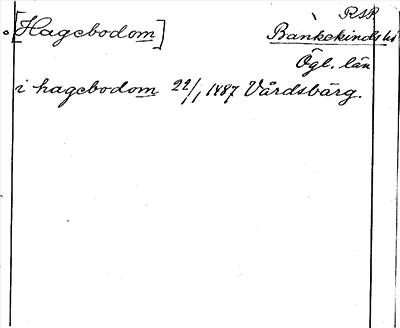 RSP
[Hagebodom] Bankekinds hd
Ögl. län
i hagebodom 22/1 1487 Vårdsbärg.